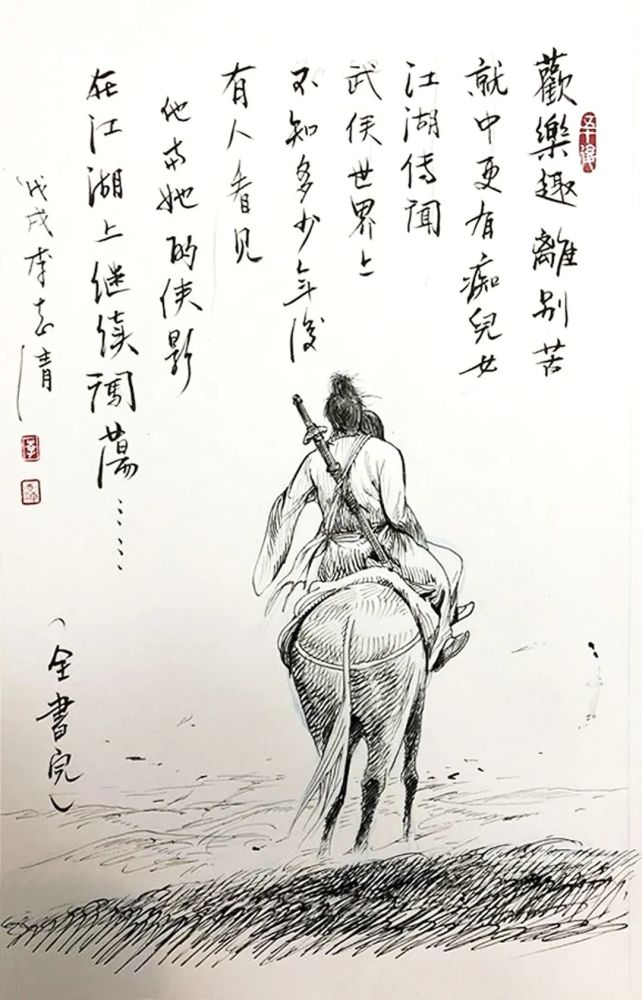 歡樂趣離别苦
就中更有痴兒女
江湖傳聞
武俠世界上
不知多少年後
有人看見
他與她的俠影
在江湖上继续闯蕩……
戊戌李志清
（全書完）